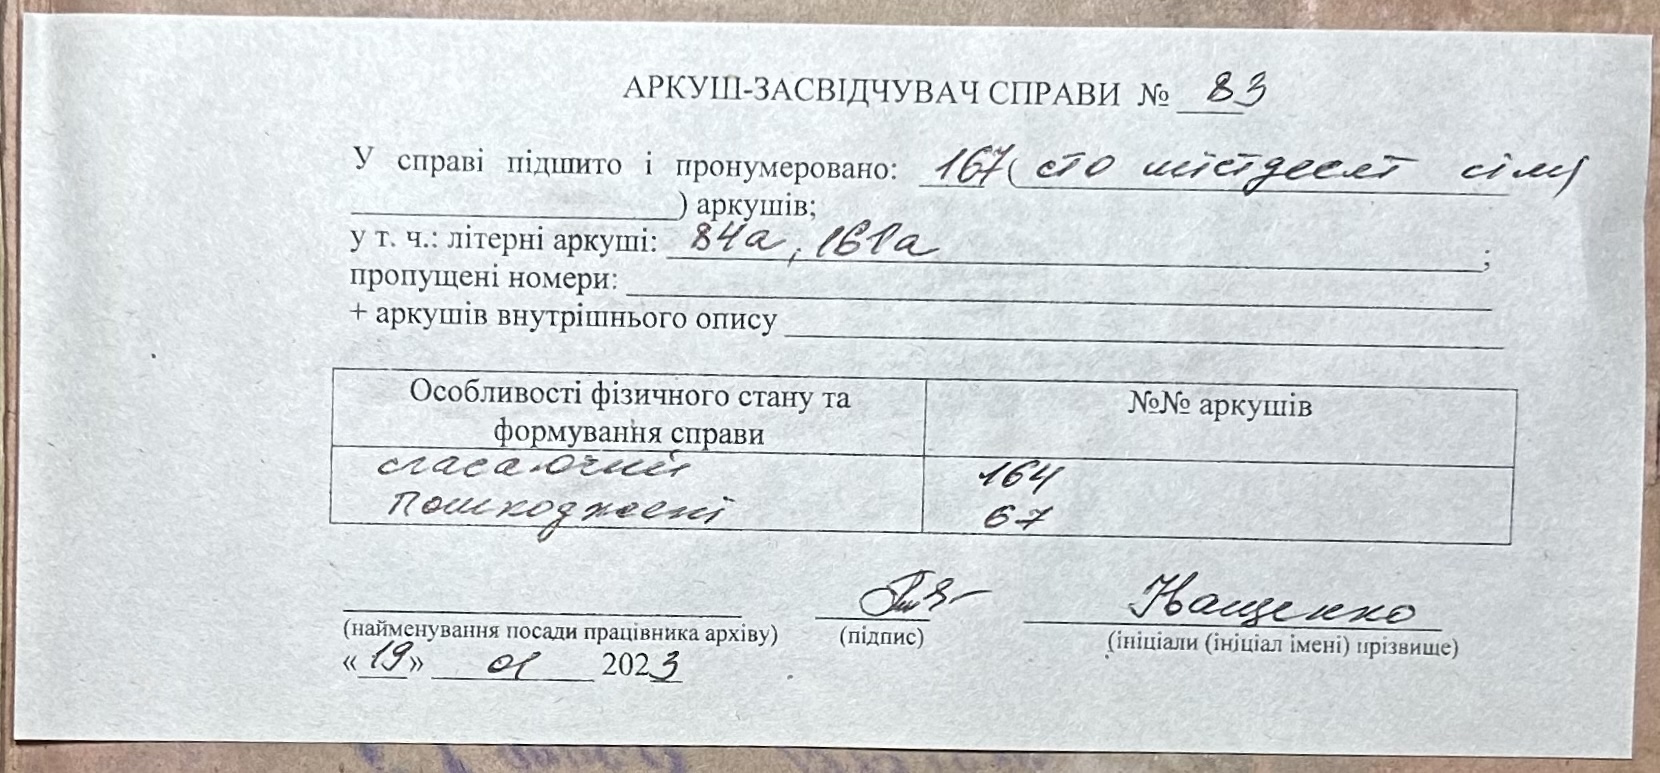 АРКУШ-ЗАСВІДЧУВАЧ СПРАВИ № 83
У справі підшито і пронумеровано: 167 (сто шістдесят сім
) аркушів;
у т. ч.: літерні аркуші: 84а, 161а ;
пропущені номери:
+ аркушів внутрішнього опису
Особливості фізичного стану та формування справи
№№ аркушів
164
пошкоджені 67
(найменування посади працівника архіву) (підпис) (ініціали (ініціал імені) прізвище)
«19» 01 2023